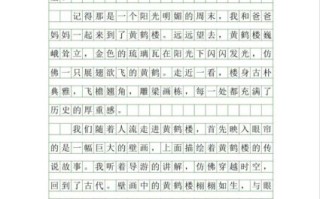 记得那是一个阳光明媚的周末，我和爸爸
妈妈一起来到了黄鹤楼。远远望去，黄鹤楼巍
峨耸立，金色的琉璃瓦在阳光下闪闪发光，仿
佛一只展翅欲飞的黄鹤。走近一看，楼身古朴
典雅，飞檐翘角，雕梁画栋，每一处都充满了
历史的厚重感。
我们随着人流走进黄鹤楼，首先映入眼帘
的是一幅巨大的壁画，上面描绘着黄鹤楼的传
说故事。我听着导游的讲解，仿佛穿越时空，
回到了古代。壁画中的黄鹤楼栩栩如生，与眼